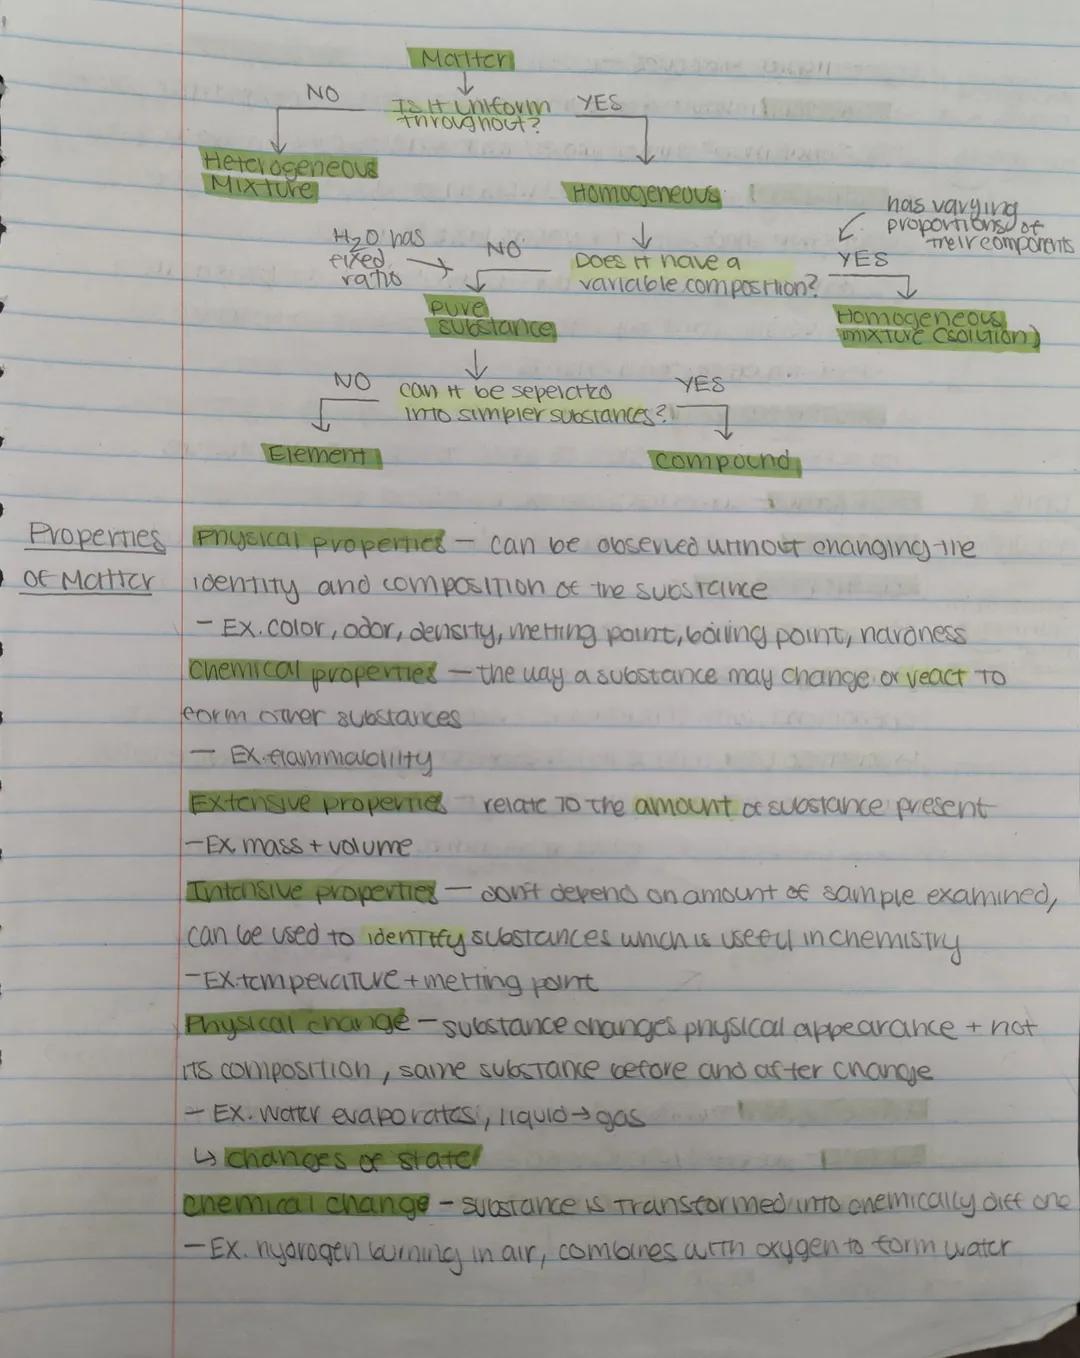 Matter
NO
Is it uniform
throughout?
YES
Heterogeneous
Mixture
Homogeneous
has varying
proportions of
their components
H₂O has
fixed
ratio
NO
Does it have a
variable composition?
YES
pure
substance
Homogeneous
mixture (solution)
NO
can it be seperated
into simpler substances?
YES
Element
compound
Properties
of Matter
Physical properties - can be observed without changing the
identity and composition of the substance
- Ex. color, odor, density, melting point, boiling point, hardness
Chemical properties - the way a substance may change or react to
form other substances
- Ex. flammability
Extensive properties relate to the amount of substance present
- Ex. mass + volume
Intensive properties - don't depend on amount of sample examined,
can be used to identify substances which is useful in chemistry
- Ex. temperature + melting point
Physical change - substance changes physical appearance + not
its composition, same substance before and after change
- Ex. water evaporates, liquid → gas
↳ changes of state
chemical change - substance is transformed into chemically diff one
- Ex. hydrogen burning in air, combines with oxygen to form water